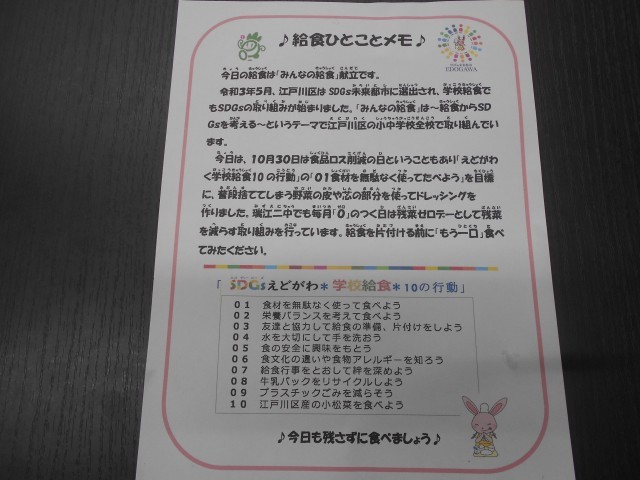 ♪給食ひとことメモ♪
EDOGAWA
今日の給食は「みんなの給食」献立です。
令和3年5月、江戸川区はSDGs未来都市に選出され、学校給食で
もSDGsの取り組みが始まりました。「みんなの給食」は～給食からSD
Gsを考える～というテーマで江戸川区の小中学校全校で取り組んでい
ます。
今日は、10月30日は食品ロス削減の日ということもあり「えどがわ
く学校給食10の行動」の「01食材を無駄なく使ってたべよう」を目標
に、普段捨ててしまう野菜の皮や芯の部分を使ってドレッシングを
作りました。瑞江二中でも毎月「0」のつく日は残菜ゼロデーとして残菜
を減らす取り組みを行っています。給食を片付ける前に「もう一口」食べ
てみてください。
「SDGsえどがわ＊学校給食＊10の行動」
01 食材を無駄なく使って食べよう
02 栄養バランスを考えて食べよう
03 友達と協力して給食の準備、片付けをしよう
04 水を大切にして手を洗おう
05 食の安全に興味をもとう
06 食文化の違いや食物アレルギーを知ろう
07 給食行事をとおして絆を深めよう
08 牛乳パックをリサイクルしよう
09 プラスチックごみを減らそう
10 江戸川区産の小松菜を食べよう
♪今日も残さずに食べましょう♪